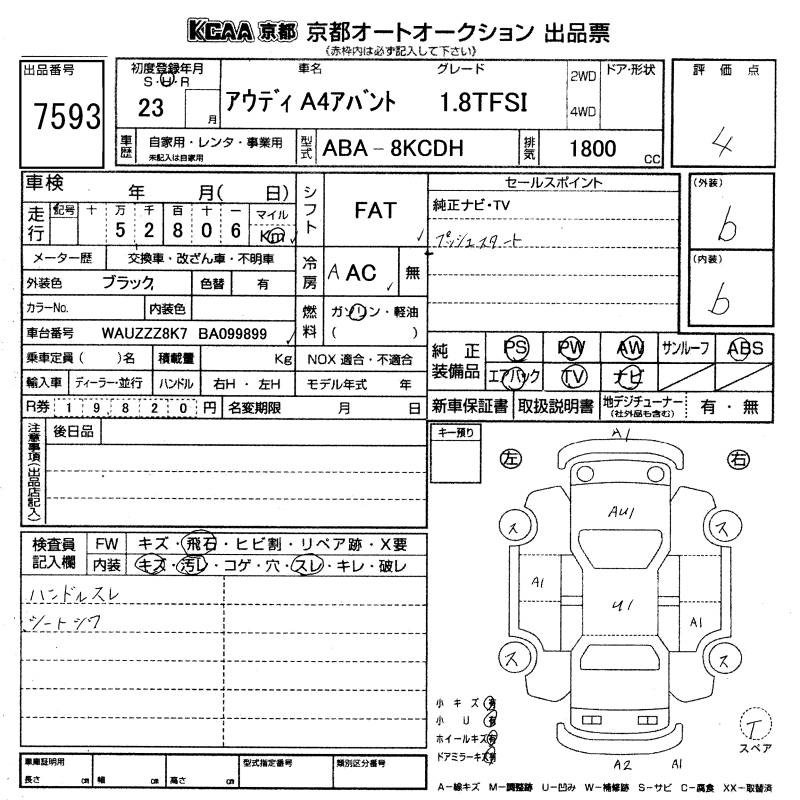 KCAA 京都 京都オートオークション 出品票
(赤枠内は必ず記入して下さい)
出品番号
7593
初度登録年月
S・H・R
23
月
車名
グレード
アウディ A4アバント 1.8TFSI
2WD
4WD
ドア・形状
評価点
4
車歴
自家用・レンタ・事業用
未記入は自家用
型式
ABA-8KCDH
排気
1800
CC
車検
年 月( 日)
走行
記号 十 万 千 百 十 一
5 2 8 0 6
マイル
Km
シフト
FAT
セールスポイント
純正ナビ・TV
プッシュスタート
(外装)
b
(内装)
b
メーター歴
交換車・改ざん車・不明車
冷房
A AC
無
外装色
ブラック
色替
有
カラーNo.
内装色
燃料
ガソリン・軽油
( )
車台番号
WAUZZZ8K7 BA099899
乗車定員( )名
積載量
Kg
NOX 適合・不適合
輸入車
ディーラー・並行
ハンドル
右H・左H
モデル年式 年
R券
19820円
名変期限 月 日
純正装備品
PS PW AW サンルーフ ABS
エアバック TV ナビ
新車保証書
取扱説明書
地デジチューナー
(社外品も含む)
有・無
注意事項(出品店記入)
後日品
キー預り
左
右
A1
AU1
ス
ス
A1
U1
A1
ス
ス
A2 A1
検査員記入欄
FW
キズ・飛石・ヒビ割・リペア跡・X要
内装
キズ・汚レ・コゲ・穴・スレ・キレ・破レ
ハンドルスレ
シートシワ
小キズ 有
小U 有
ホイールキズ 有
ドアミラーキズ 有
T
スペア
車庫証明用
長さ cm
幅 cm
高さ cm
型式指定番号
類別区分番号
A-線キズ M-調整跡 U-凹み W-補修跡 S-サビ C-腐食 XX-取替済